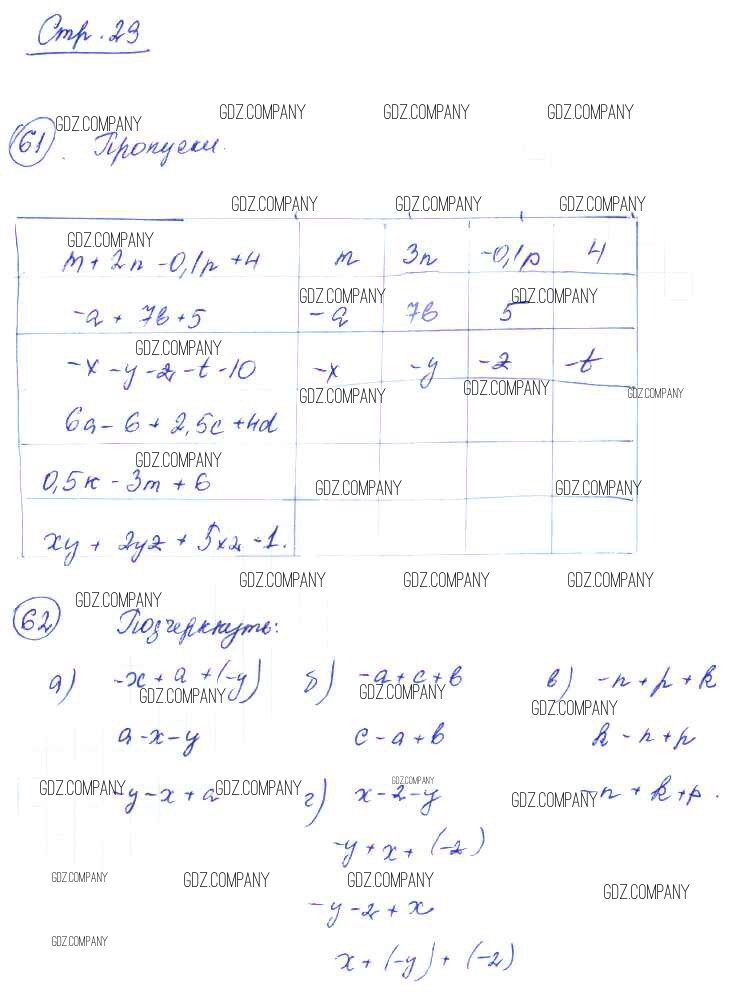 Стр. 29
GDZ.COMPANY GDZ.COMPANY GDZ.COMPANY
GDZ.COMPANY
61. Пропуски.
GDZ.COMPANY GDZ.COMPANY GDZ.COMPANY
GDZ.COMPANY
m + 2n - 0,1p + 4 m 3n -0,1p 4
GDZ.COMPANY GDZ.COMPANY
-a + 7b + 5 -a 7b 5
GDZ.COMPANY
-x - y - z - t - 10 -x -y -z -t
GDZ.COMPANY GDZ.COMPANY GDZ.COMPANY
6a - 6 + 2,5c + 4d
GDZ.COMPANY
0,5k - 3m + 6
GDZ.COMPANY GDZ.COMPANY
xy + 2yz + 5xz - 1.
GDZ.COMPANY GDZ.COMPANY GDZ.COMPANY
GDZ.COMPANY
62 Подчеркнуть:
а) -x + a + (-y) б) -a + c + b в) -n + p + k
GDZ.COMPANY GDZ.COMPANY GDZ.COMPANY
a - x - y c - a + b k - n + p
GDZ.COMPANY GDZ.COMPANY GDZ.COMPANY GDZ.COMPANY
-y - x + a г) x - z - y -n + k + p.
-y + x + (-z)
GDZ.COMPANY GDZ.COMPANY GDZ.COMPANY GDZ.COMPANY
-y - z + x
GDZ.COMPANY
x + (-y) + (-z)